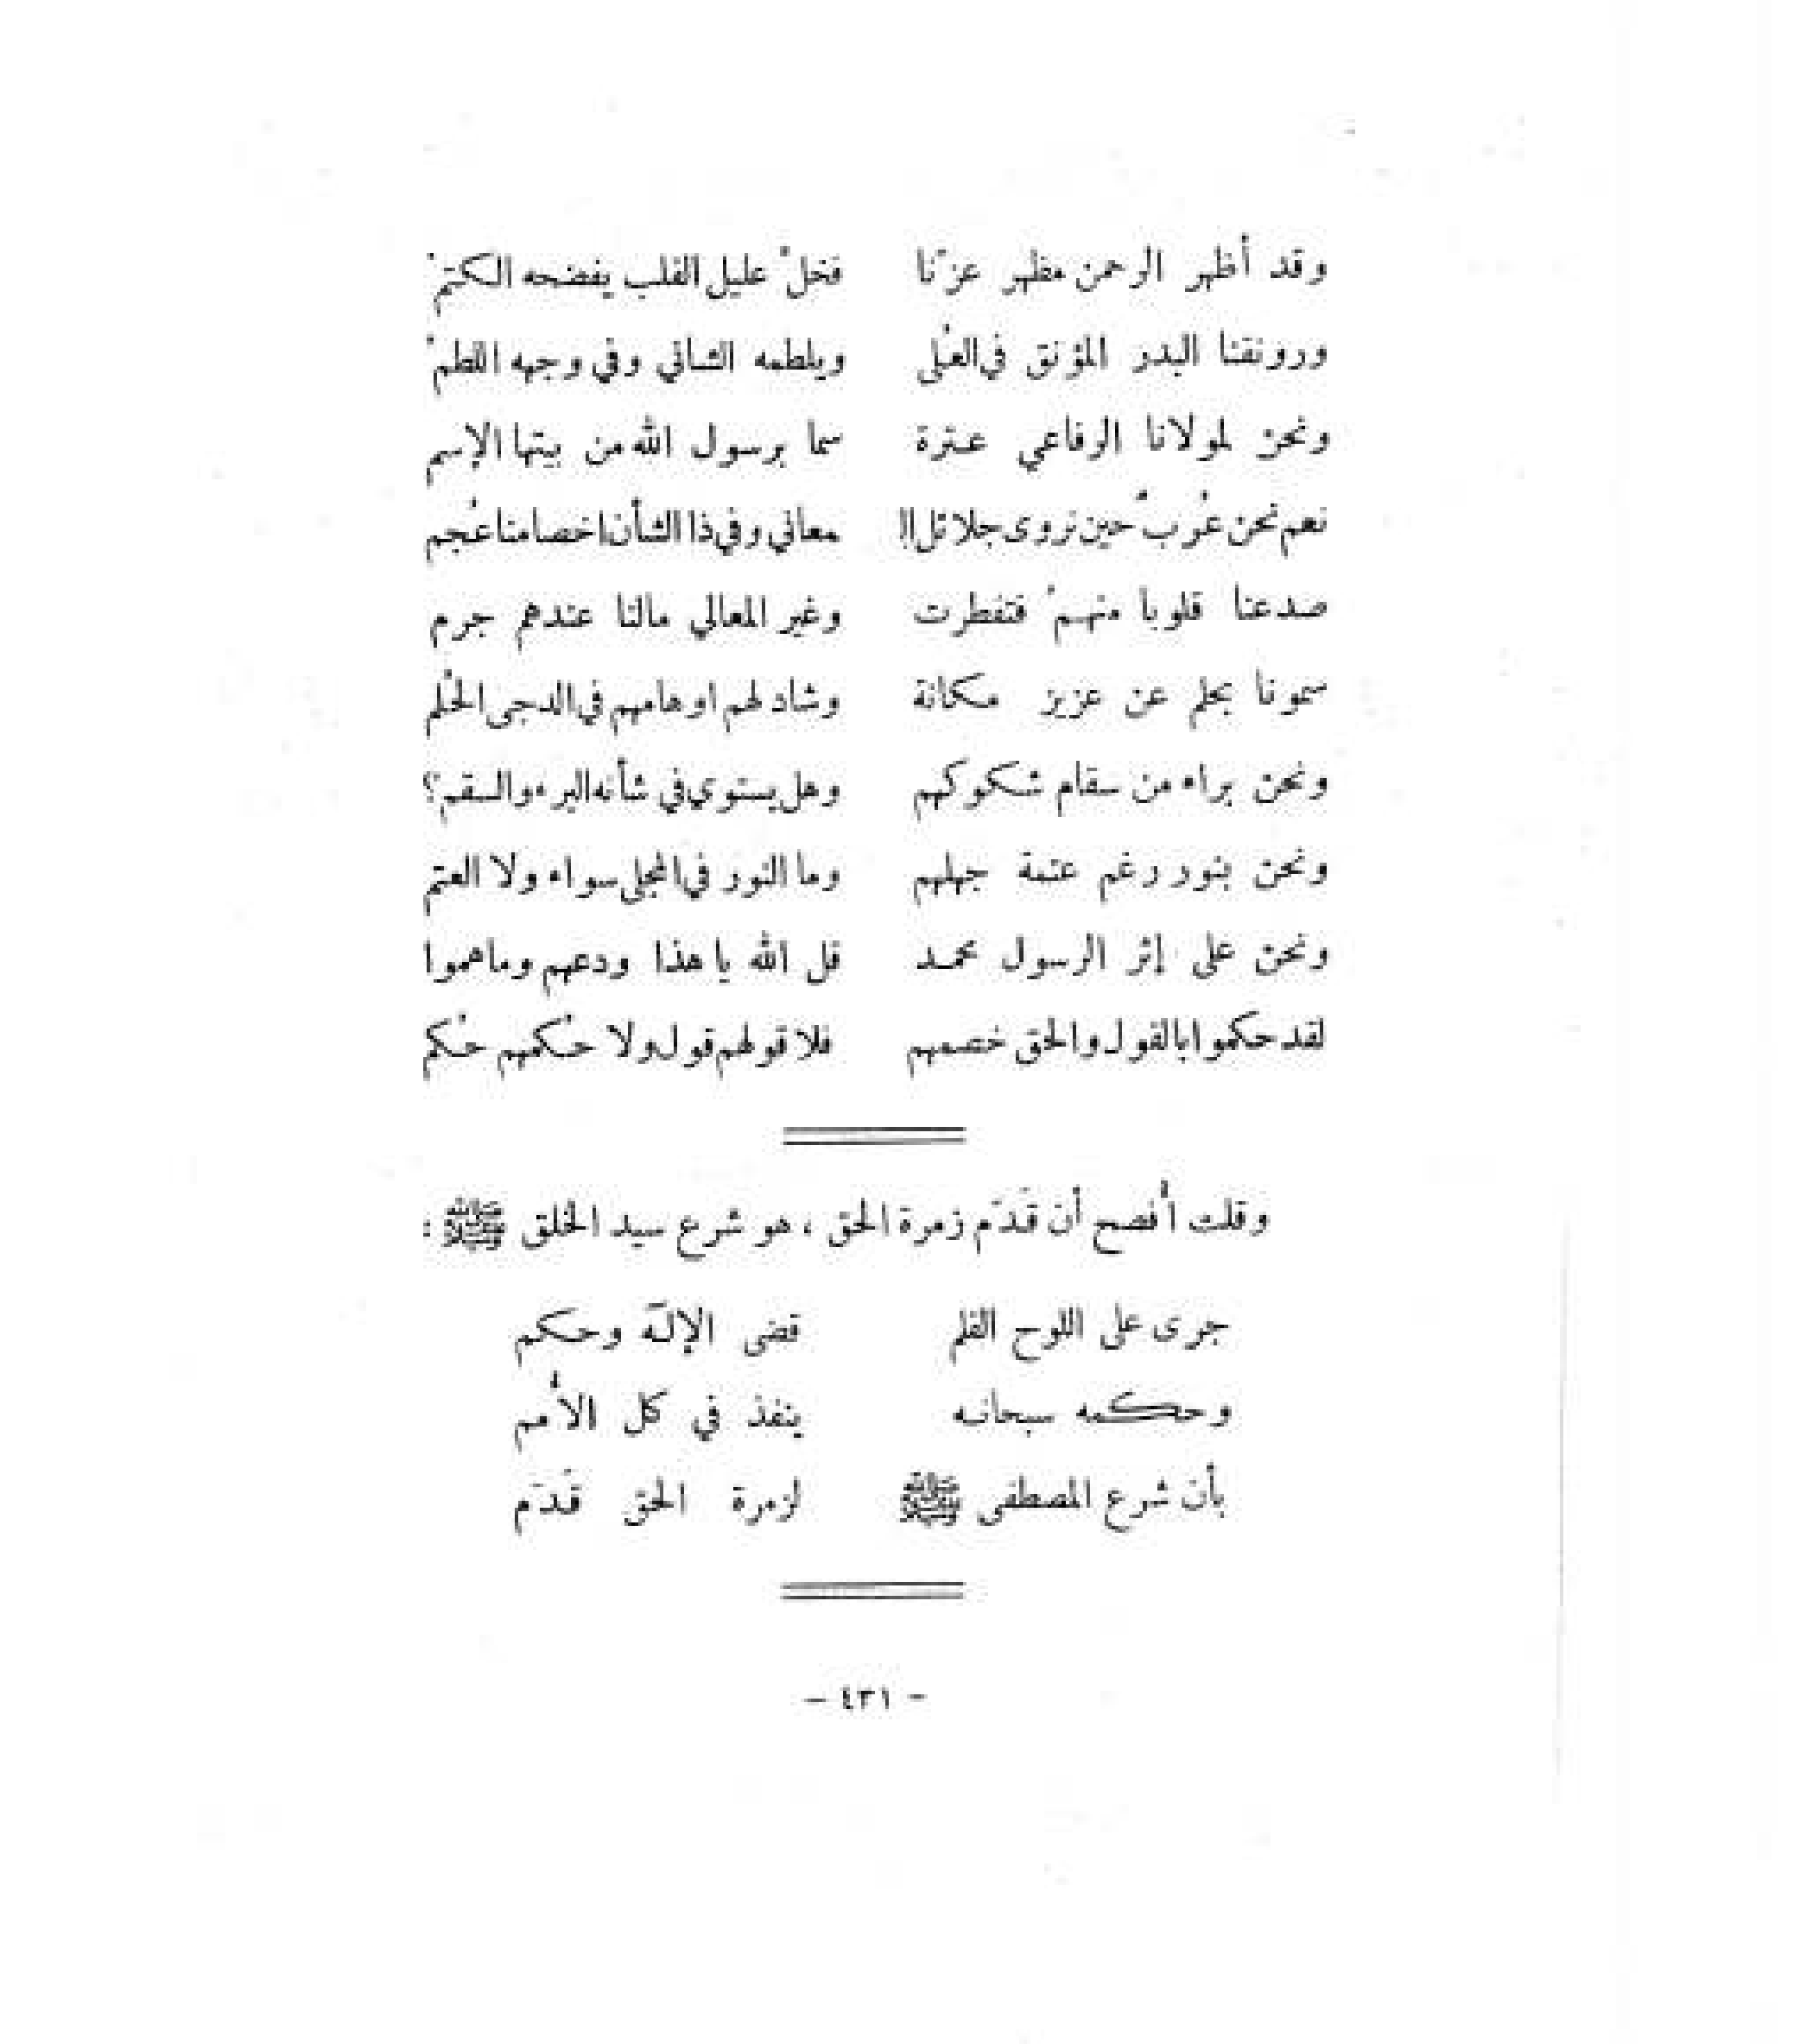 وقد أظهر الرحمن مظهر عزّنا فخلّ عليل القلب يفضحه الكتمُ
ورونقنا البدر المؤنق في العُلى ويلطمه الشاني وفي وجهه اللطمُ
ونحن لمولانا الرفاعي عترة سما برسول الله من بيتها الإسم
نعم نحن عُربٌ حين نروى جلائل ال معاني وفي ذا الشأن اخصامنا عُجم
صدعنا قلوباً منهمُ فتفطرت وغير المعالي مالنا عندهم جرم
سمونا بحلم عن عزيز مكانة وشاد لهم اوهامهم في الدجى الحُلم
ونحن براء من سقام شكوكهم وهل يستوي في شأنه البرء والسقم؟
ونحن بنور رغم عتمة جهلهم وما النور في المجلى سواء ولا العتم
ونحن على إثر الرسول محمد قل الله يا هذا ودعهم وما هموا
لقد حكموا بالقول والحق خصمهم فلا قولهم قول ولا حُكمهم حُكم
وقلت أفصح أن قَدَم زمرة الحق ، هو شرع سيد الخلق ﷺ :
جرى على اللوح القلم قضى الإلَه وحكم
وحكمه سبحانه ينفذ في كل الأمم
بأن شرع المصطفى ﷺ لزمرة الحق قَدَم
- ٤٣١ -